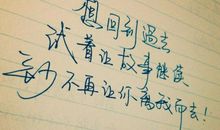 想回到過去
试着让故事继续
至少不再让你离我而去!